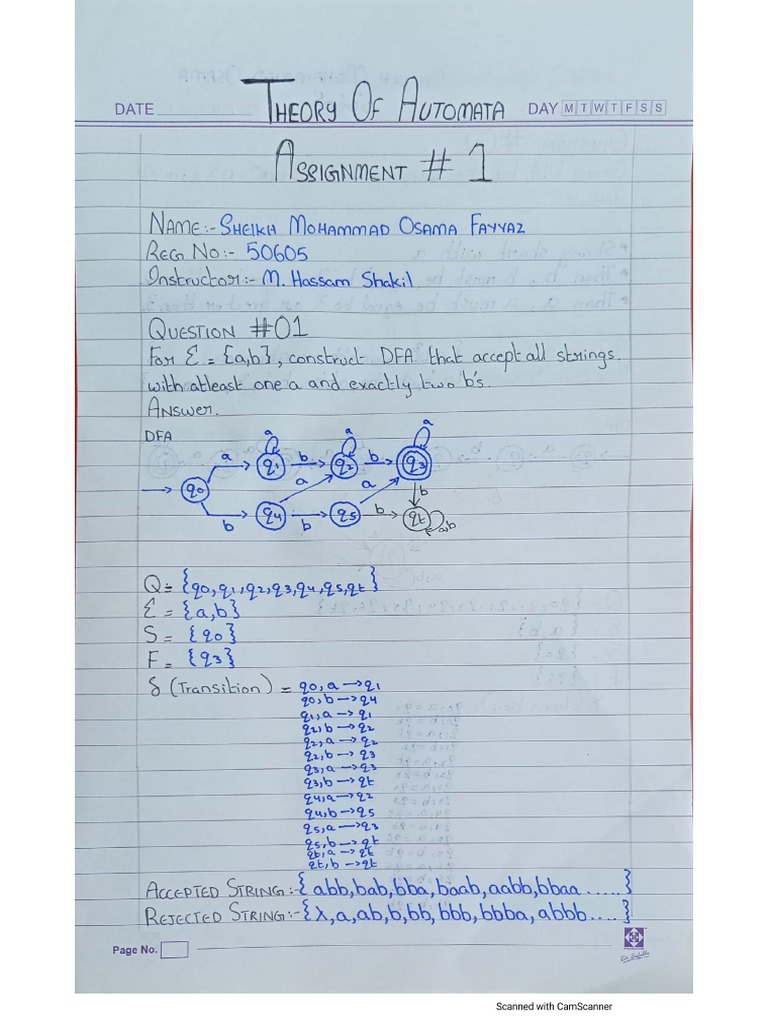 DATE THEORY OF AUTOMATA DAY M T W T F S S
ASSIGNMENT # 1
NAME:- SHEIKH MOHAMMAD OSAMA FAYYAZ
REG NO:- 50605
Instructor:- M. Hassam Shakil
QUESTION #01
For Σ = {a,b}, construct DFA that accept all strings.
with atleast one a and exactly two b's.
ANSWER.
DFA
a a a
a q1 b q2 b q3
q0 a a b
b q4 b q5 b qt a,b
Q = {q0,q1,q2,q3,q4,q5,qt}
Σ = {a,b}
S = {q0}
F = {q3}
δ (Transition) = q0, a → q1
q0, b → q4
q1, a → q1
q2, b → q2
q2, a → q2
q2, b → q3
q3, a → q3
q3, b → qt
q4, a → q2
q4, b → q5
q5, a → q3
q5, b → qt
qt, a → qt
qt, b → qt
ACCEPTED STRING:- {abb, bab, bba, baab, aabb, bbaa ......}
REJECTED STRING:- {λ, a, ab, b, bb, bbb, bbba, abbb ....}
Page No.
Scanned with CamScanner